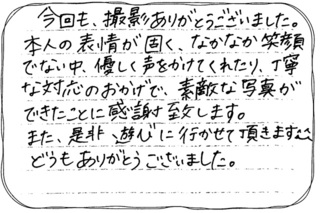 今回も、撮影ありがとうございました。
本人の表情が固く、なかなか笑顔
でない中、優しく声をかけてくれたり、丁寧
な対応のおかげで、素敵な写真が
できたことに感謝致します。
また、是非、遊びに行かせて頂きます^^
どうもありがとうございました。